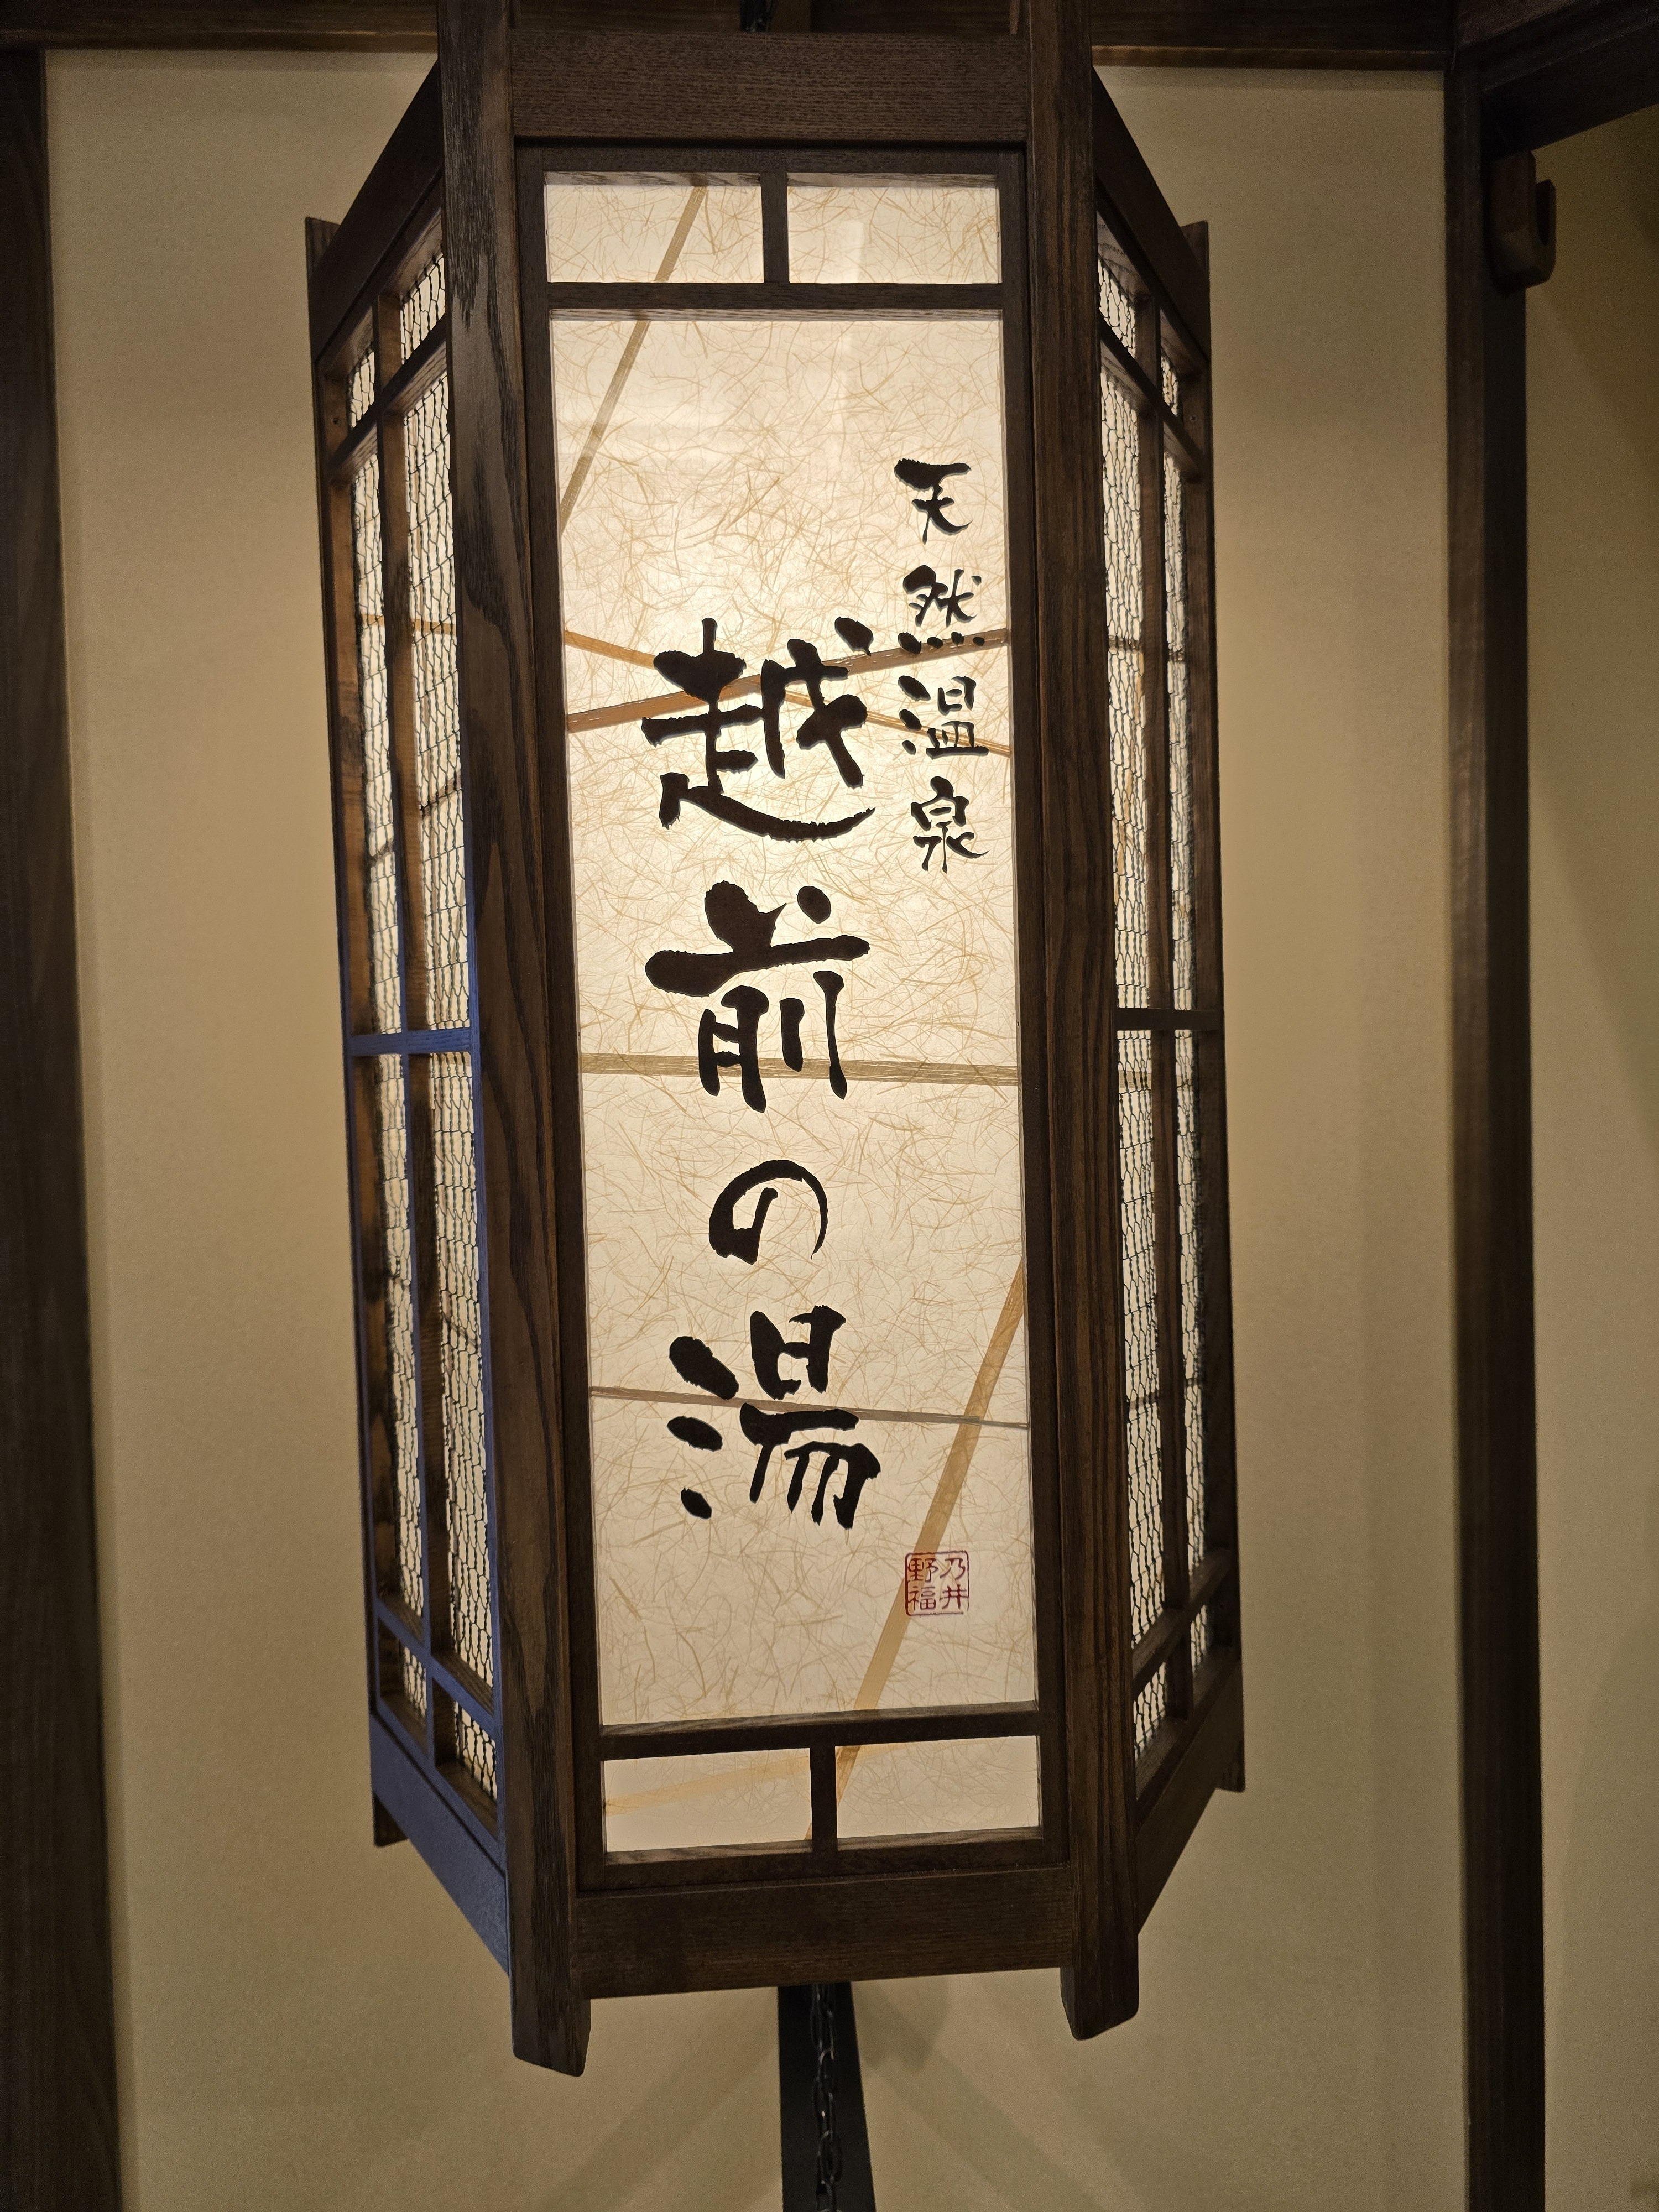 天然温泉
越前の湯
乃井
野福